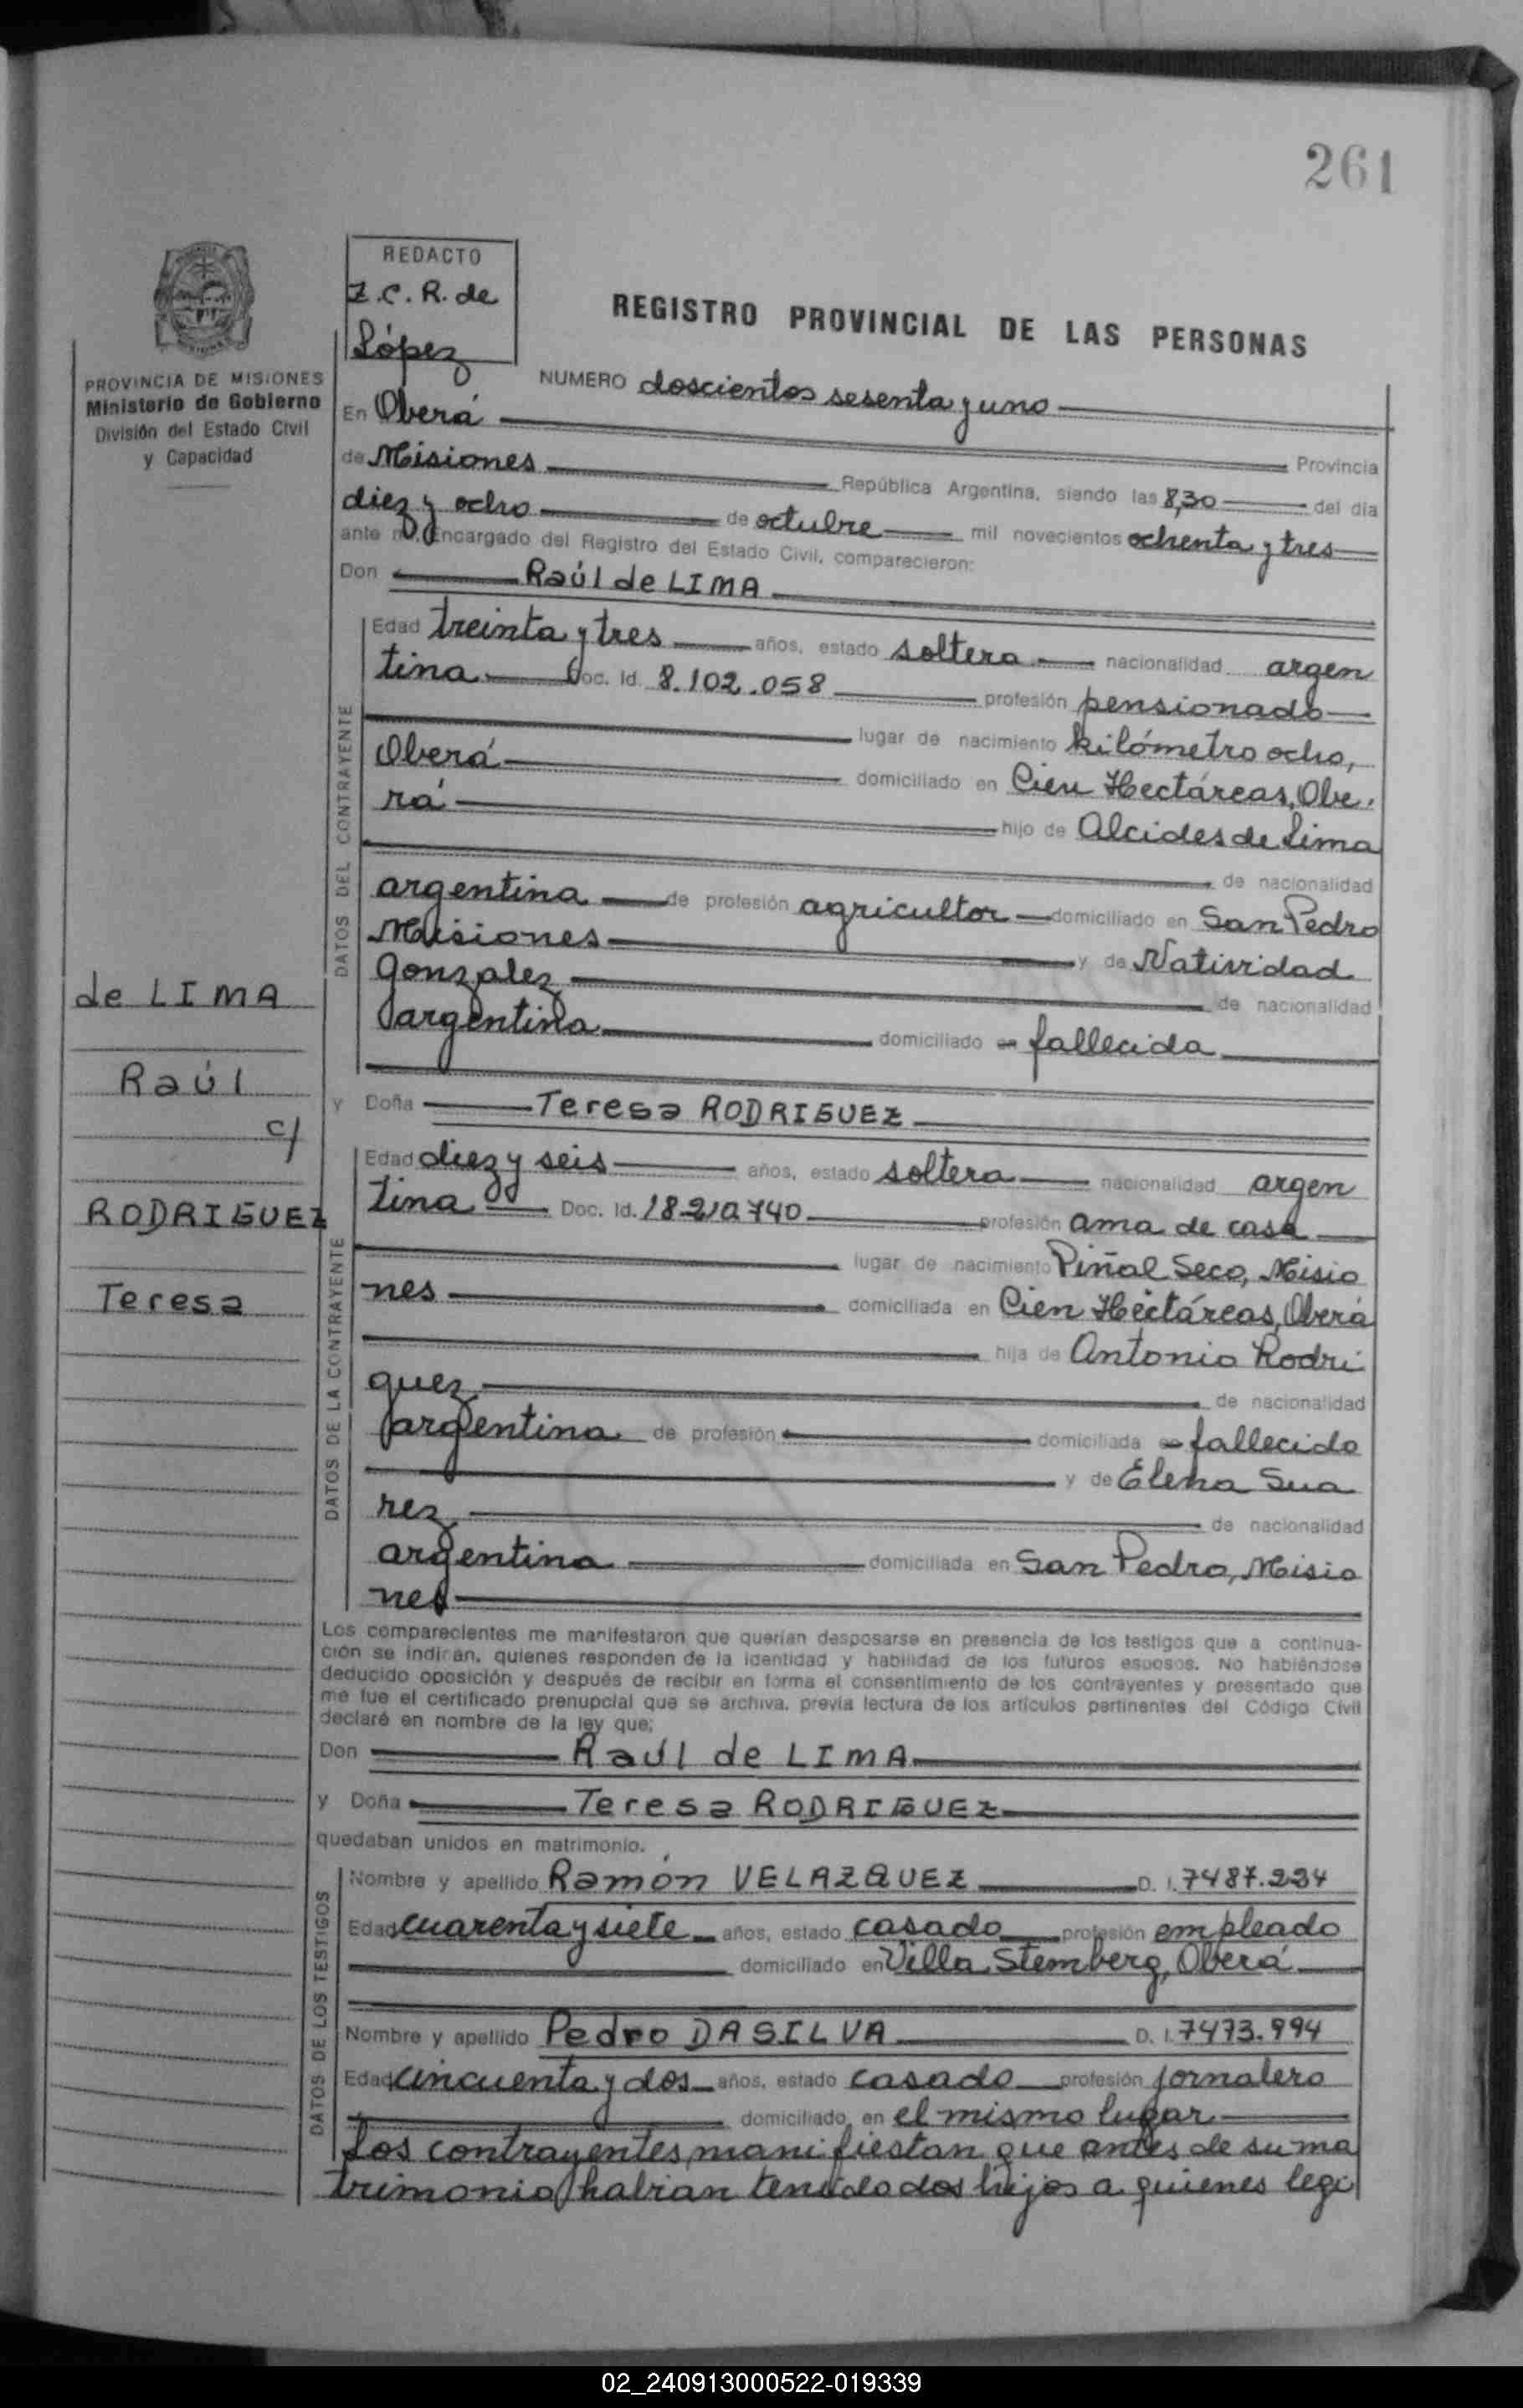 261
REDACTO
Z.C.R. de
López
REGISTRO PROVINCIAL DE LAS PERSONAS
PROVINCIA DE MISIONES
Ministerio de Gobierno
División del Estado Civil
y Capacidad
NUMERO doscientos sesenta y uno
En Oberá Provincia
de Misiones República Argentina, siendo las 8,30 del día
diez y ocho de octubre mil novecientos ochenta y tres
ante mí, Encargado del Registro del Estado Civil, comparecieron:
Don Raúl de LIMA
DATOS DEL CONTRAYENTE
Edad treinta y tres años, estado soltera nacionalidad argen
tina Doc. Id. 8.102.058 profesión pensionado
lugar de nacimiento kilómetro ocho,
Oberá domiciliado en Cien Hectáreas, Obe
rá hijo de Alcides de Lima
de nacionalidad
argentina de profesión agricultor domiciliado en San Pedro
Misiones y de Natividad
Gonzalez de nacionalidad
argentina domiciliado en fallecida
de LIMA
Raúl
c/
RODRIGUEZ
Teresa
y Doña Teresa RODRIGUEZ
DATOS DE LA CONTRAYENTE
Edad diez y seis años, estado soltera nacionalidad argen
tina Doc. Id. profesión ama de casa
lugar de nacimiento Piñal Seco, Misio
nes domiciliada en Cien Hectáreas, Oberá
hija de Antonio Rodri
guez de nacionalidad
argentina de profesión domiciliada en fallecido
y de Elena Sua
rez de nacionalidad
argentina domiciliada en San Pedro, Misio
nes
Los comparecientes me manifestaron que querían desposarse en presencia de los testigos que a continua-
ción se indican, quienes responden de la identidad y habilidad de los futuros esposos. No habiéndose
deducido oposición y después de recibir en forma el consentimiento de los contrayentes y presentado que
me fue el certificado prenupcial que se archiva, previa lectura de los artículos pertinentes del Código Civil
declaré en nombre de la ley que:
Don Raúl de LIMA
y Doña Teresa RODRIGUEZ
quedaban unidos en matrimonio.
DATOS DE LOS TESTIGOS
Nombre y apellido Ramón VELAZQUEZ D. I. 7487.224
Edad cuarenta y siete años, estado casado profesión empleado
domiciliado en Villa Stemberg, Oberá
Nombre y apellido Pedro DASILVA D. I. 7473.994
Edad cincuenta y dos años, estado casado profesión jornalero
domiciliado en el mismo lugar
Los contrayentes manifiestan que antes de su ma
trimonio habian tenido dos hijos a quienes legi
02_240913000522-019339